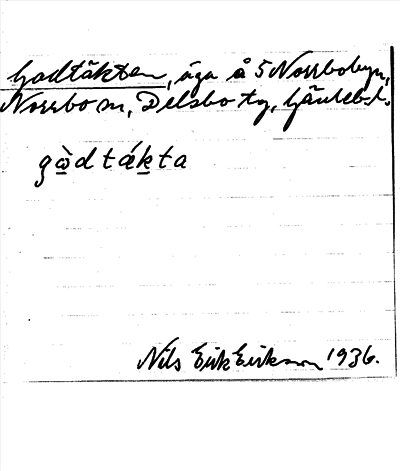 Godtäkten, äga å 5 Norrbobyn,
Norrbo sn, Delsbo tg,
gòdtákta
Nils Erik Eriksson 1936.